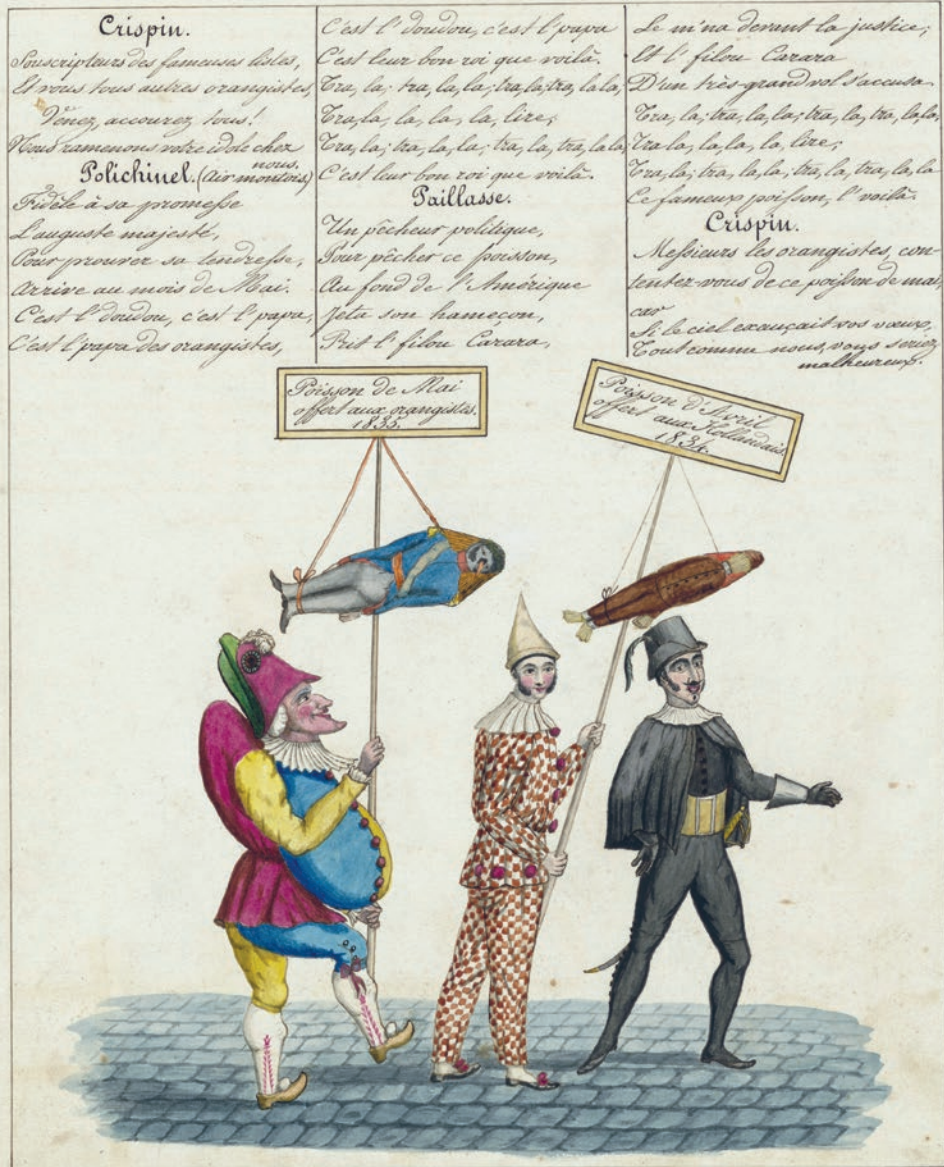 Crispin.
Souscripteurs des fameuses listes,
Et vous tous autres orangistes,
Venez, accourez tous!
Nous ramenons votre idole chez
nous.
Polichinel. (Air montois)
Fidèle à sa promesse
L'auguste majesté,
Pour prouver sa tendresse,
Arrive au mois de Mai.
C'est l'doudou, c'est l'papa,
C'est l'papa des orangistes,
C'est l'doudou, c'est l'papa
C'est leur bon roi que voilà.
Tra, la; tra, la, la; tra, la, tra, la la,
Tra, la, la, la, la, lire;
Tra, la; tra, la, la; tra, la, tra, la, la,
C'est leur bon roi que voilà.
Paillasse.
Un pêcheur politique,
Pour pêcher ce poisson,
Au fond de l'Amérique
Jeta son hameçon,
Prit l'filou Carara,
Le m'na devant la justice,
Et l'filou Carara
D'un très-grand vol s'accusa
Tra, la; tra, la, la; tra, la, tra, la, la,
Tra la, la, la, la, lire,
Tra, la; tra, la, la; tra, la, tra, la, la
Ce fameux poisson, l'voilà.
Crispin.
Messieurs les orangistes, con-
tentez-vous de ce poisson de mai,
car
Si le ciel exauçait vos vœux,
Tout comme nous, vous seriez
malheureux.
Poisson de Mai
offert aux orangistes.
1835.
Poisson d'Avril
offert aux Hollandais.
1834.